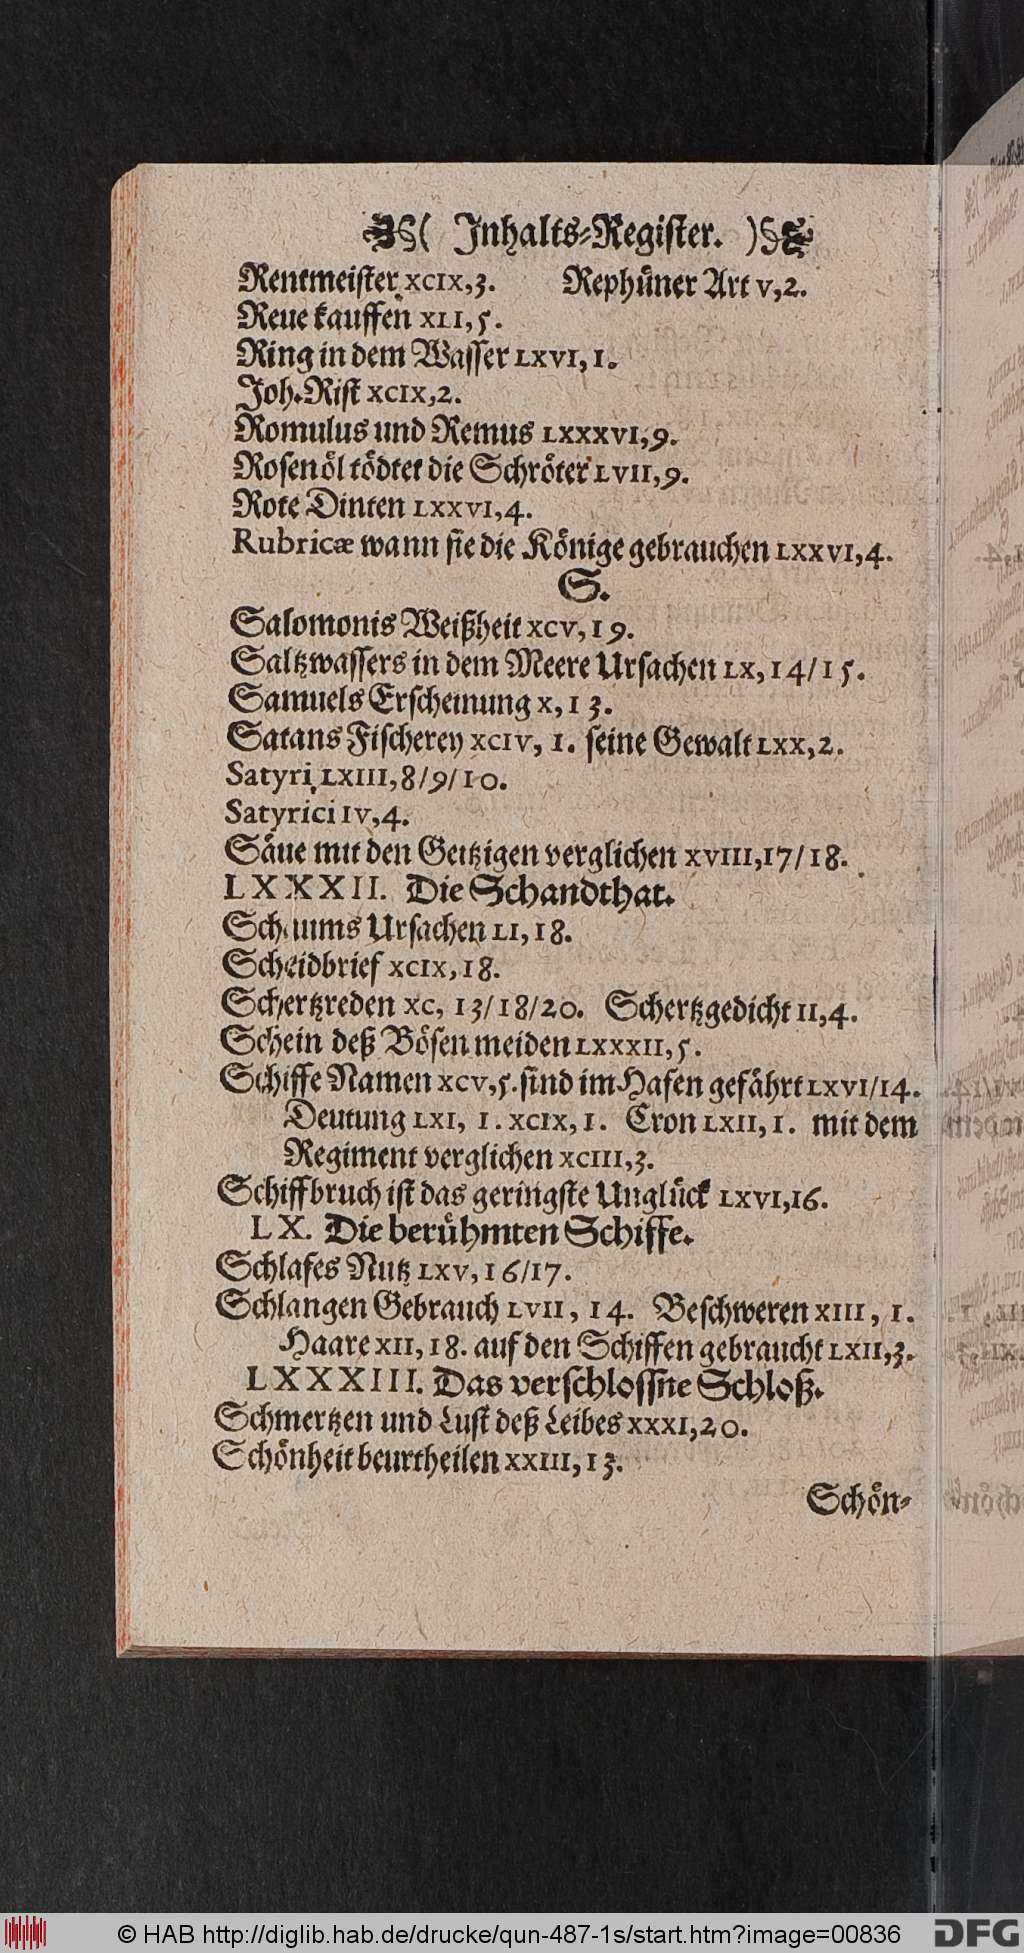 ( Inhalts-Register. )
Rentmeister XCIX,3. Rephůner Art V,2.
Reue kauffen XLI,5.
Ring in dem Wasser LXVI,1.
Joh. Rist XCIX,2.
Romulus und Remus LXXXVI,9.
Rosenöl tödtet die Schröter LVII,9.
Rote Dinten LXXVI,4.
Rubricæ wann sie die Könige gebrauchen LXXVI,4.
S.
Salomonis Weißheit XCV,19.
Saltzwassers in dem Meere Ursachen LX,14/15.
Samuels Erscheinung X,13.
Satans Fischerey XCIV, 1. seine Gewalt LXX,2.
Satyri LXIII,8/9/10.
Satyrici IV,4.
Säue mit den Geitzigen verglichen XVIII,17/18.
LXXXII. Die Schandthat.
Schaums Ursachen LI,18.
Scheidbrief XCIX,18.
Schertzreden XC, 13/18/20. Schertzgedicht II,4.
Schein deß Bösen meiden LXXXII,5.
Schiffe Namen XCV,5. sind im Hafen gefährt LXVI/14.
Deutung LXI, 1. XCIX,1. Cron LXII,1. mit dem
Regiment verglichen XCIII,3.
Schiffbruch ist das geringste Unglück LXVI,16.
LX. Die berühmten Schiffe.
Schlafes Nutz LXV,16/17.
Schlangen Gebrauch LVII, 14. Beschweren XIII, 1.
Haare XII,18. auf den Schiffen gebraucht LXII,3.
LXXXIII. Das verschlossne Schloß.
Schmertzen und Lust deß Leibes XXXI,20.
Schönheit beurtheilen XXIII,13.
Schön-
© HAB http://diglib.hab.de/drucke/qun-487-1s/start.htm?image=00836
DFG